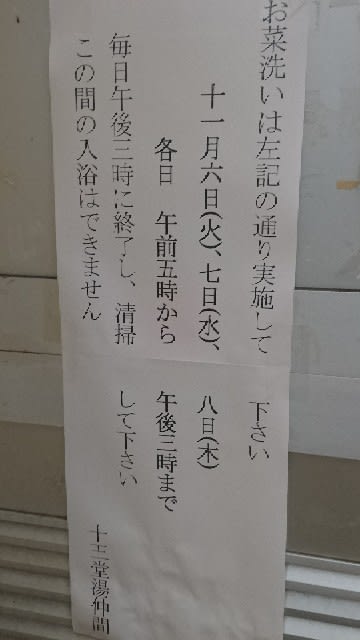 お菜洗いは左記の通り実施して下さい
十一月六日(火)、七日(水)、八日(木)
各日 午前五時から午後三時まで
毎日午後三時に終了し、清掃して下さい
この間の入浴はできません
十王堂湯仲間